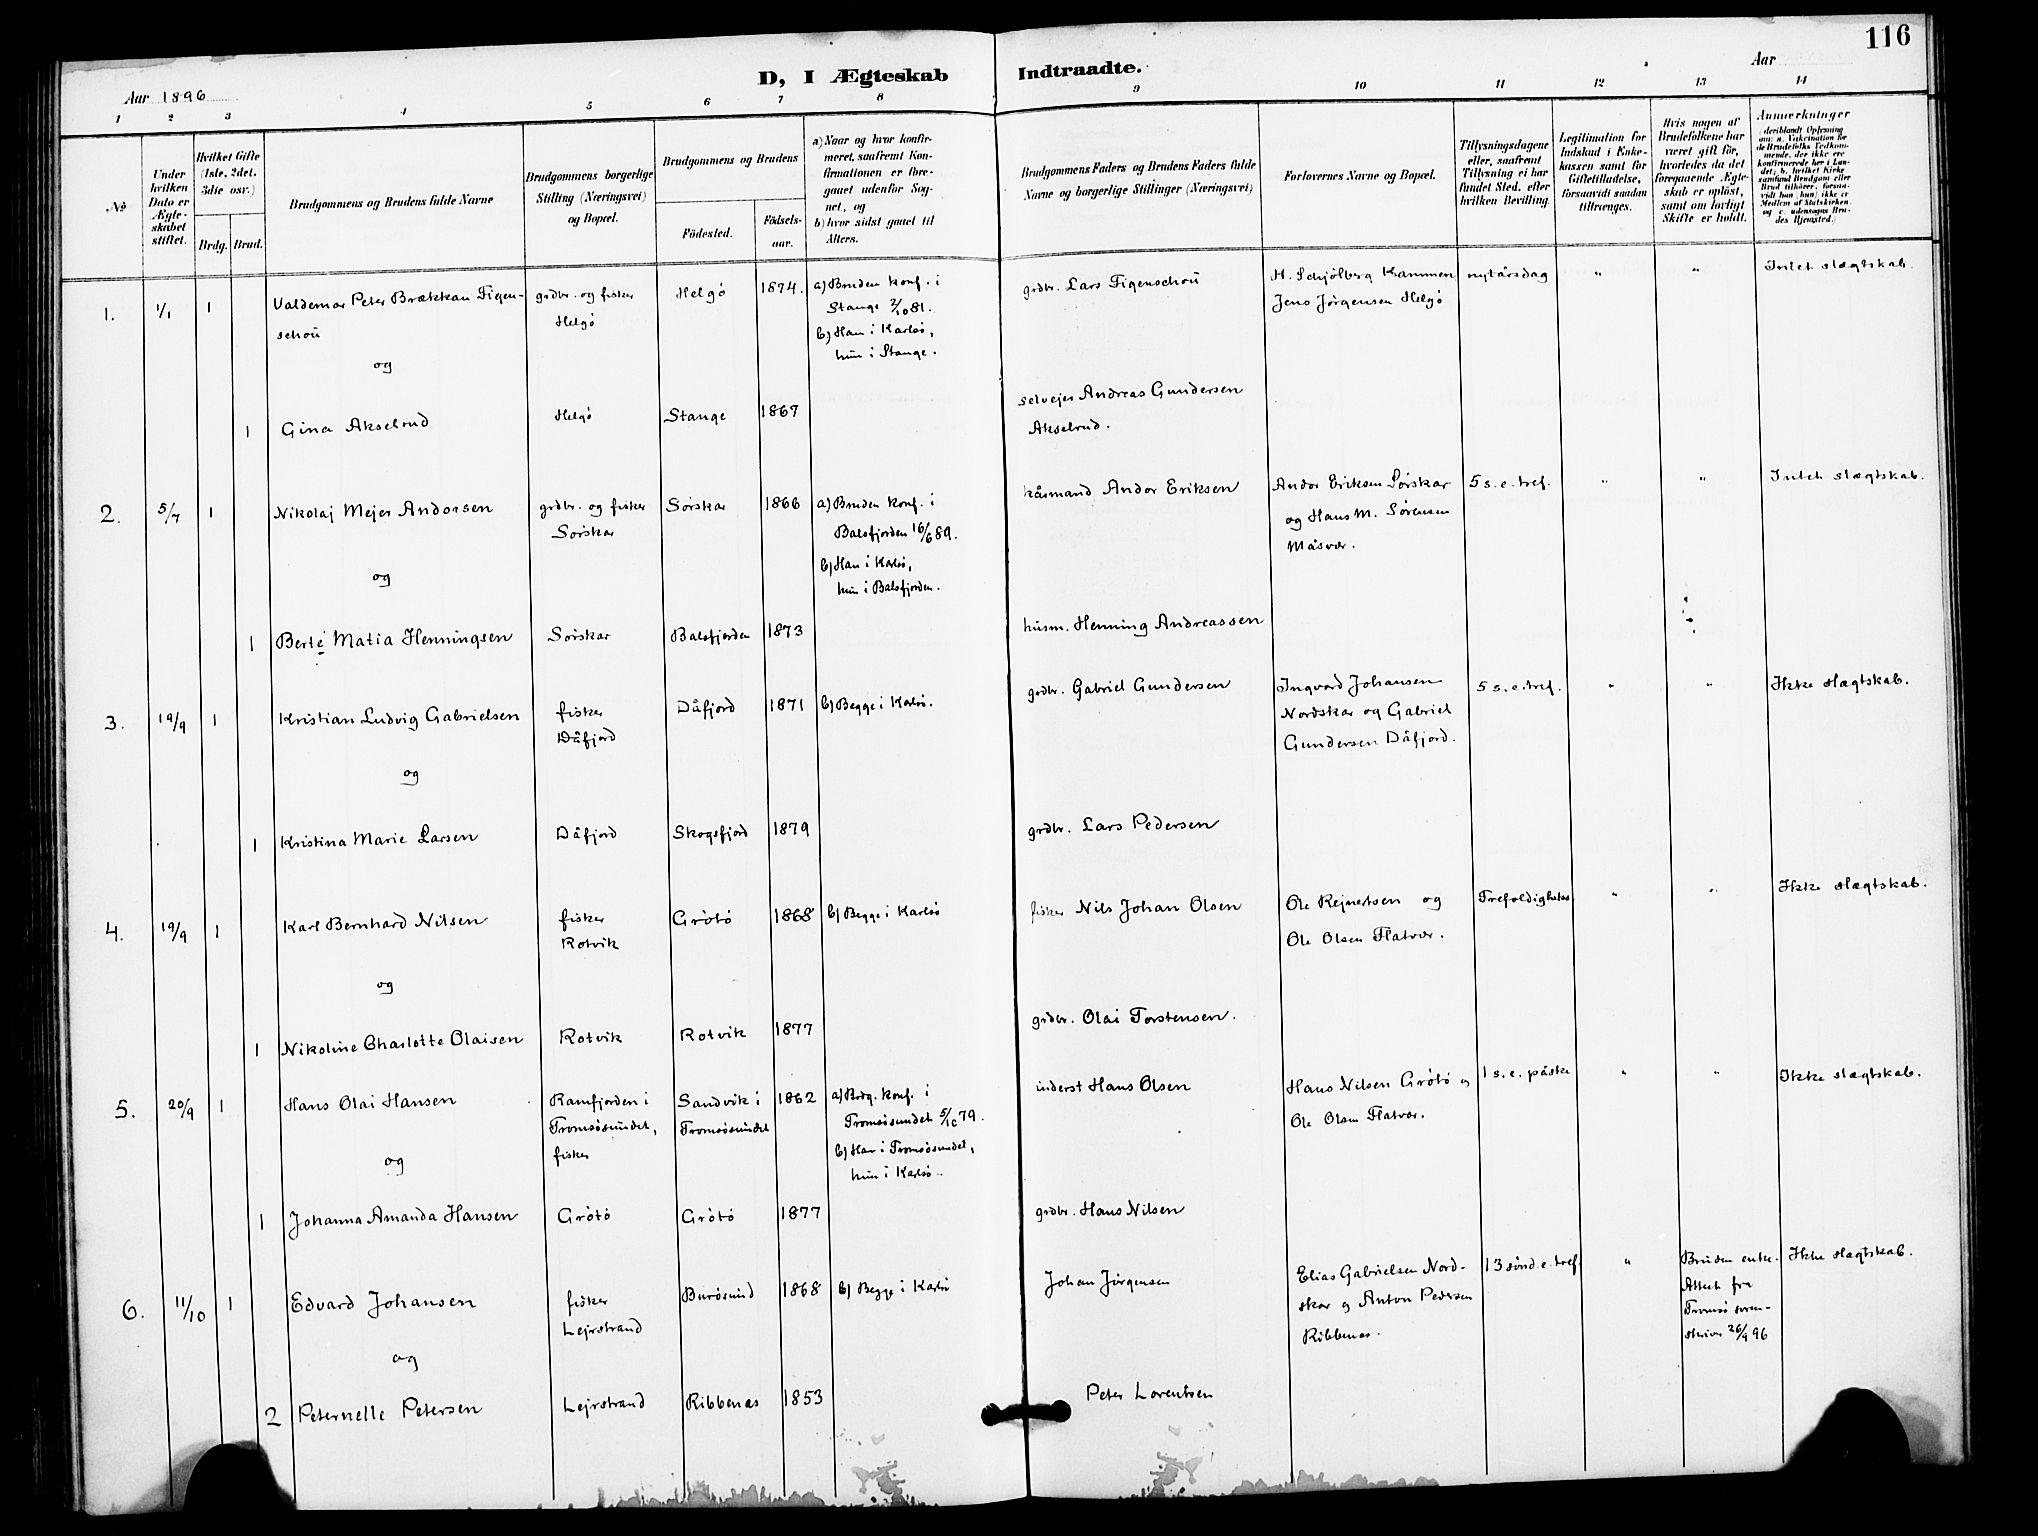 116
D, I Ægteskab Indtraadte.
Aar 1896
Aar
1 2 3 4 5 6 7 8 9 10 11 12 13 14
No
Under hvilken Dato er Ægte-skabet stiftet.
Hvilket Gifte (1ste, 2det, 3die osv.)
Brdg. Brud.
Brudgommens og Brudens fulde Navne
Brudgommens borgerlige Stilling (Næringsvei) og Bopæl.
Brudgommens og Brudens
Födested.
Födsels-aar.
a) Naar og hvor konfir-meret, saafremt Kon-firmationen er fore-gaaet udenfor Sog-net, og
b) hvor sidst gaaet til Alters.
Brudgommens Faders og Brudens Faders fulde Navne og borgerlige Stillinger (Næringsvei)
Forlovernes Navne og Bopæl.
Tillysningsdagene eller, saafremt Tillysning ei har fundet Sted, efter hvilken Bevilling.
Legitimation for Indskud i Enke-kassen samt for Giftetilladelse, forsaavidt saadan tiltrænges.
Hvis nogen af Brudefolkene har været gift før, hvorledes da det foregaaende Ægte-skab er opløst, samt om lovligt Skifte er holdt.
Anmærkninger
(deriblandt Oplysning om: a. Vakcination for de Brudefolks Vedkom-mende, der ikke ere konfirmerede her i Lan-det; b. hvilket Kirke-samfund Brudgom eller Brud tilhører, forsaa-vidt han (hun) ikke er Medlem af Statskirken, og c. udensogns Bru-des Hjemsted.)
1. 1/1 1 Valdemar Peter Brækkan Figen-
schou
og
grdbr. og fisker
Helgö
Helgö 1874.
a) Bruden konf. i
Stange 2/10 81.
b) Han i Karlsö,
hun i Stange.
grdbr. Lars Figenschou
H. Schjölberg Kammen
Jens Jörgensen Helgö
nytårsdag " "
Intet slægtskab.
1 Gina Akselrud Helgö Stange 1867
selvejer Andreas Gundersen
Akselrud.
2. 5/7 1 Nikolaj Mejer Andorsen
og
grdbr. og fisker
Sörskar
Sörskar 1866
a) Bruden konf. i
Balsfjorden 16/6 89.
b) Han i Karlsö,
hun i Balsfjorden.
håsmand Andor Eriksen
Andor Eriksen Sörskar
og Hans M. Sörensen
Måsvær.
5 s. e. tref. " "
Intet slægtskab.
1 Berte Matia Henningsen Sörskar Balsfjorden 1873
husm. Henning Andreassen
3. 19/9 1 Kristian Ludvig Gabrielsen
og
fisker
Dåfjord
Dåfjord 1871
b) Begge i Karlsö.
grdbr. Gabriel Gundersen
Ingvard Johansen
Nordskar og Gabriel
Gundersen Dåfjord.
5 s. e. tref. " "
Ikke slægtskab.
1 Kristina Marie Larsen Dåfjord Skogsfjord 1879
grdbr. Lars Pedersen
4. 19/9 1 Karl Bernhard Nilsen
og
fisker
Rotvik
Grötö 1868
b) Begge i Karlsö
fisker Nils Johan Olsen
Ole Rejnertsen og
Ole Olsen Flatvær.
Trefoldighetss " "
Ikke slægtskab.
1 Nikoline Charlotte Olaisen Rotvik Rotvik 1877
grdbr. Olai Torstensen.
5. 20/9 1 Hans Olai Hansen
og
Ramfjorden i
Tromsösundet,
fisker
Sandvik i
Tromsösundet
1862
a) Brdg. konf. i
Tromsösundet 5/10 79.
b) Han i Tromsösundet,
hun i Karlsö.
inderst Hans Olsen
Hans Nilsen Grötö og
Ole Olsen Flatvær.
1 s. e. påske " "
Ikke slægtskab.
1 Johanna Amanda Hansen Grötö Grötö 1877
grdbr. Hans Nilsen
6. 11/10 1 Edvard Johansen
og
fisker
Lejrstrand
Burösund 1868
b) Begge i Karlsö
Johan Jörgensen
Elias Gabrielsen Nord-
skar og Anton Pedersen
Ribbenes.
13 sönd. e. tref. "
Bruden enke.
Attest fra
Tromsö soren-
skriver 26/9 96
Ikke slægtskab.
2 Peternelle Petersen Lejrstrand Ribbenes 1853
Peter Lorentsen